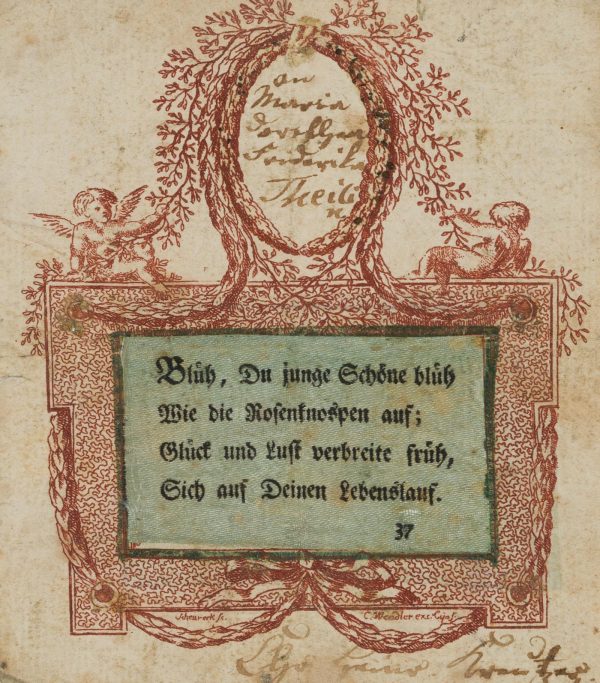 an
Maria
Friderika
Theili
n
Blüh, Du junge Schöne blüh
Wie die Rosenknospen auf;
Glück und Lust verbreite früh,
Sich auf Deinen Lebenslauf.
37
Scheurerk fc.
C. Wendler exc. Lipsf.